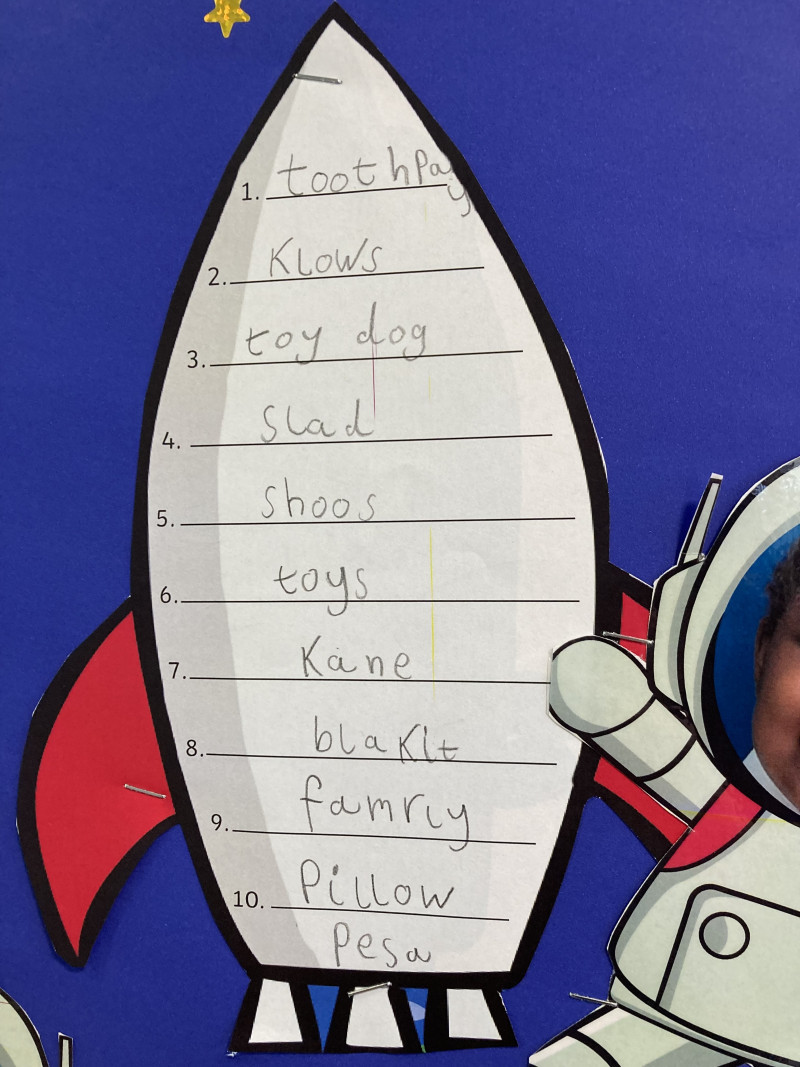 1. toothpay
2. Klows
3. toy dog
4. slad
5. shoos
6. toys
7. Kane
8. blaKlt
9. famrly
10. Pillow
Pesa